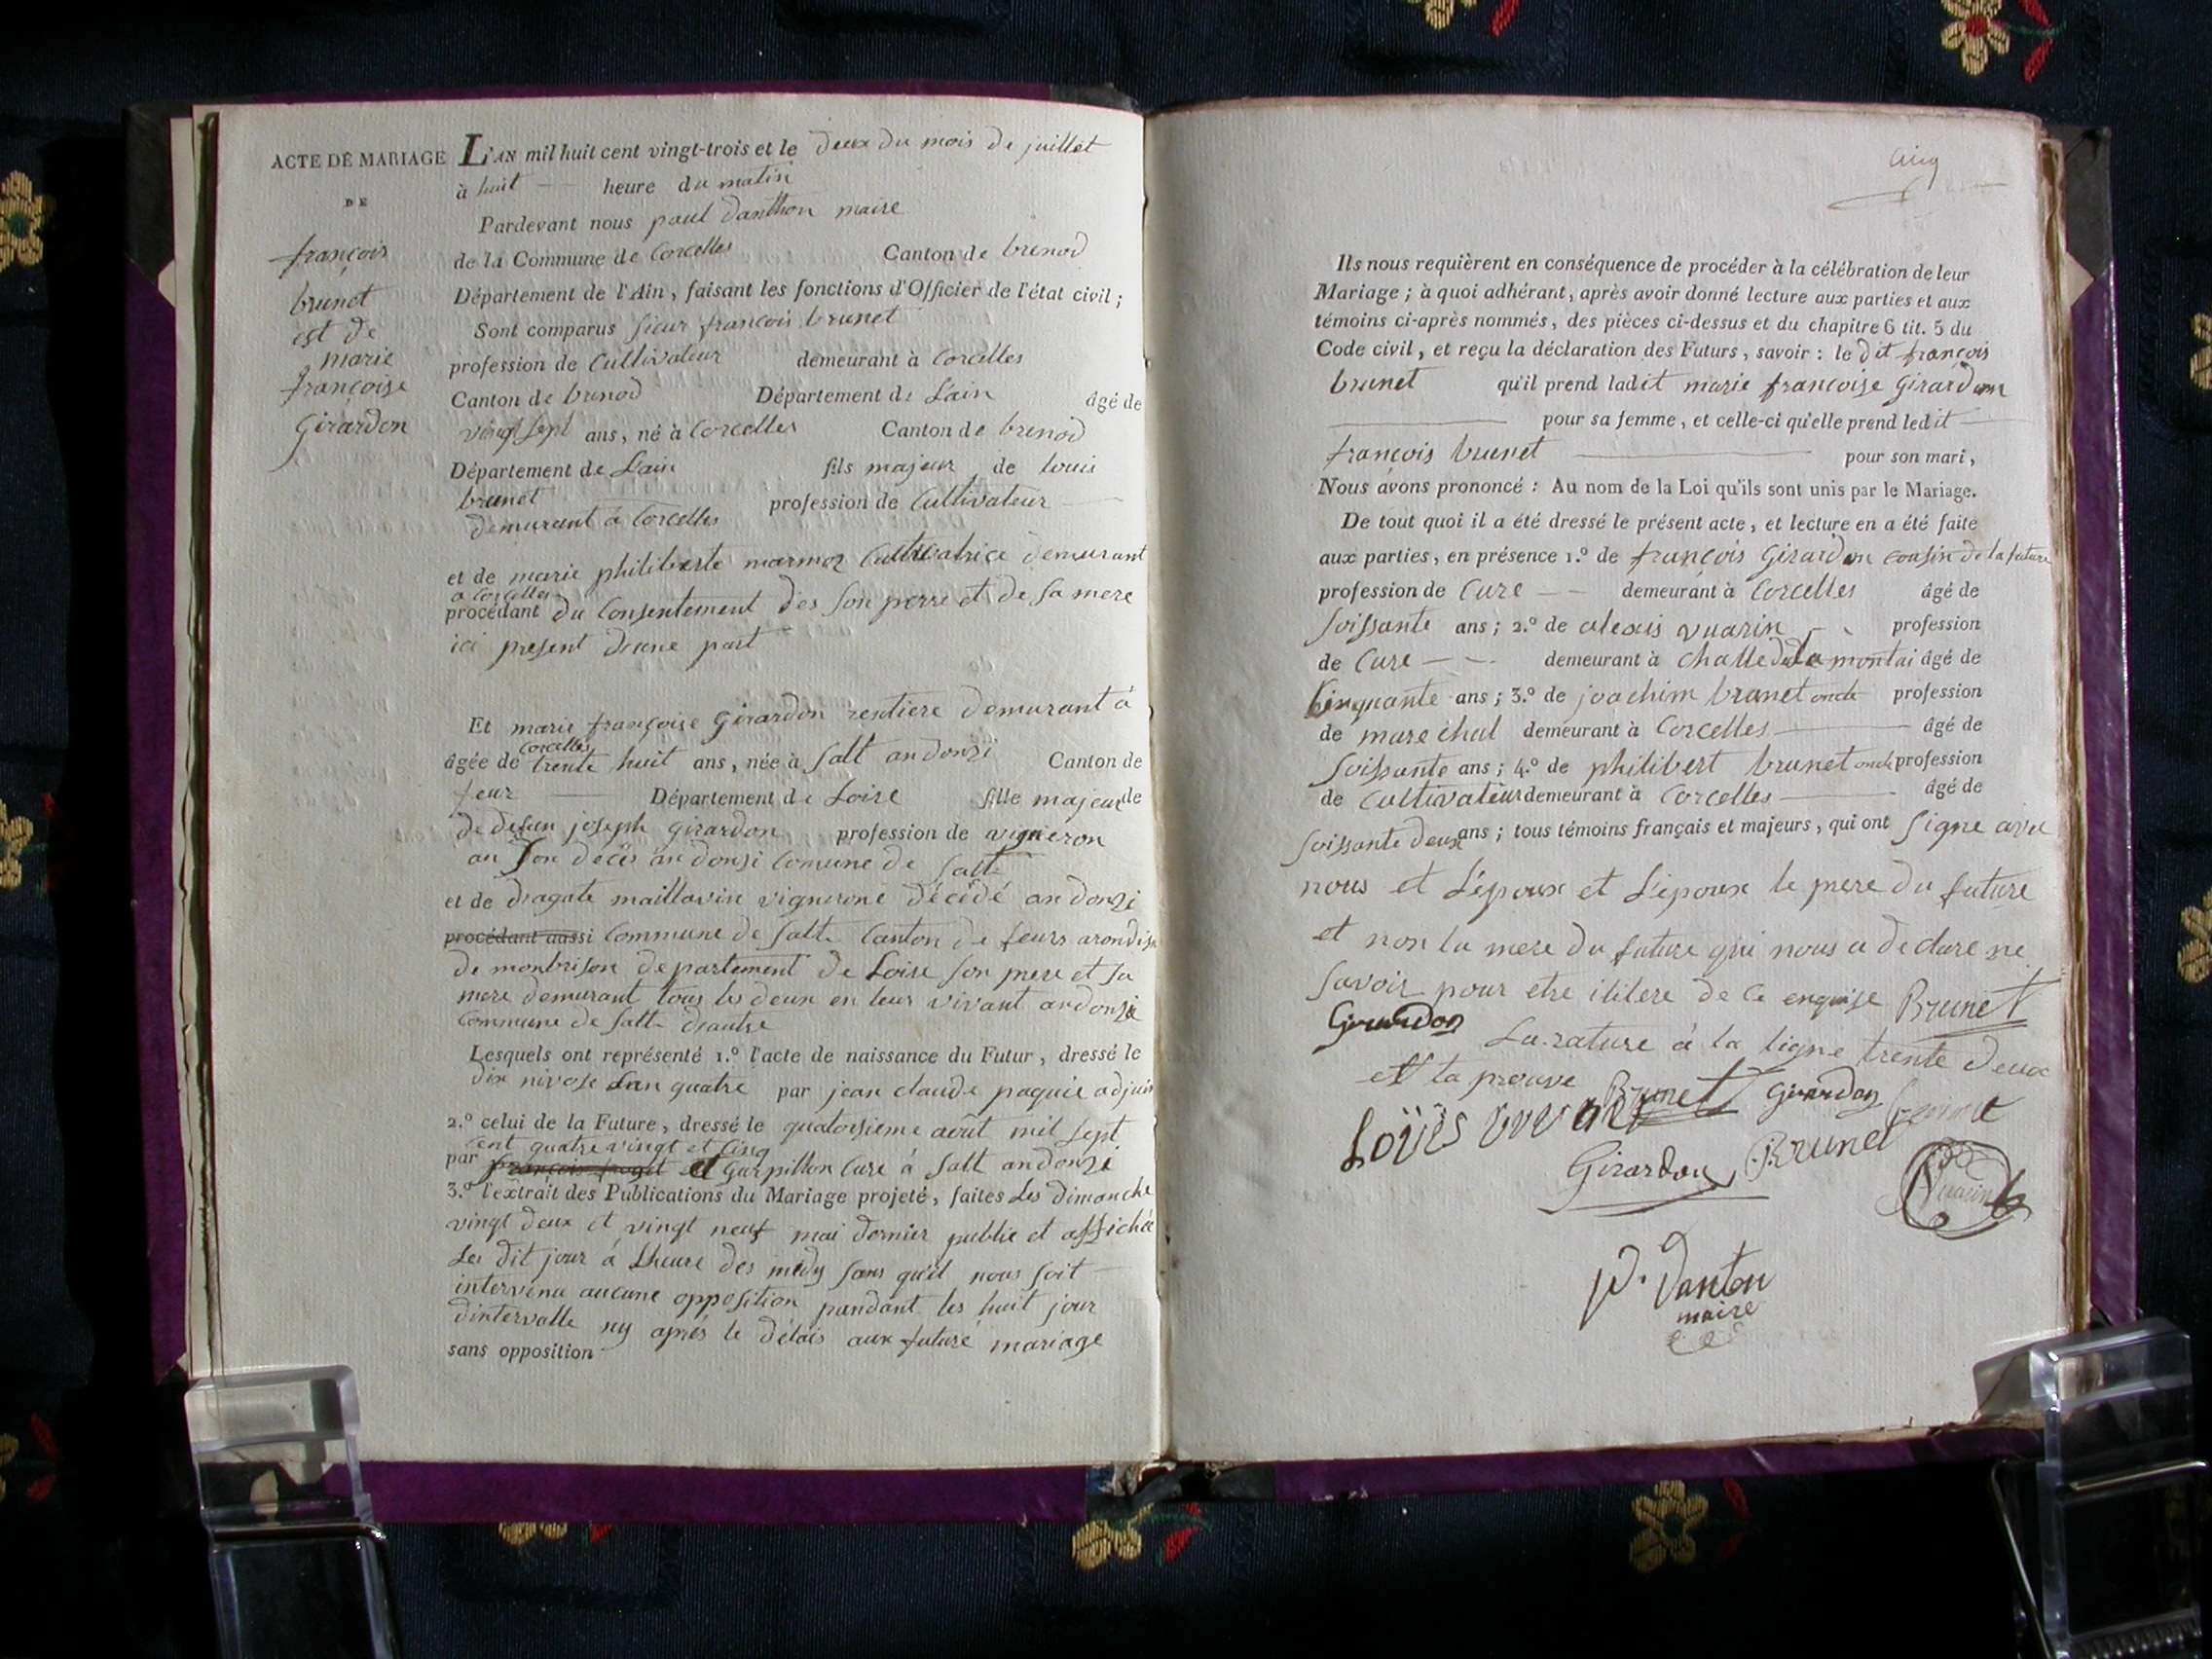 ACTE DE MARIAGE
DE
françois
brunet
est de
marie
françoise
Girardon
L'AN mil huit cent vingt-trois et le deux du mois de juillet
à huit — heure du matin
Pardevant nous paul danthon maire
de la Commune de Corcelles Canton de brenod
Département de l'Ain, faisant les fonctions d'Officier de l'état civil;
Sont comparus sieur françois brunet
profession de Cultivateur demeurant à Corcelles
Canton de brenod Département de Lain âgé de
vingt sept ans, né à Corcelles Canton de brenod
Département de Lain fils majeur de louis
brunet profession de Cultivateur
demurant a Corcelles
et de marie philiberte marmoz Cultivatrice demurant
a Corcelles
procédant du Consentement des son perre et de sa mere
ici present dune part
Et marie françoise Girardon rentiere demurant à
Corcelles
âgée de trente huit ans, née à Salt andonzi Canton de
feur — Département de Loire fille majeur de
de defun joseph girardon profession de vigneron
an son deces andonzi Comune de Salt
et de dragate maillavin vignerone décédé andonzi
procédant aussi Commune de Salt Canton de feurs arondis
de montbrison departement de Loire son pere et sa
mere demurant tous les deux en leur vivant andonzi
Commune de Salt dautre
Lesquels ont représenté 1.º l'acte de naissance du Futur, dressé le
dix nivose Lan quatre par jean claude paquie adjuin
2.º celui de la Future, dressé le quatorsieme août mil sept
cent quatre vingt et Cinq
par Garpillon Cure à Salt andonzi
3.º l'extrait des Publications du Mariage projeté, faites Les dimanche
vingt deux et vingt neuf mai dernier publie et affichée
Les dit jour à Lheure des midy sans quil nous soit
intervenu aucune opposition pandant les huit jour
dintervalle ny après le délais aux futuré mariage
sans opposition
Cinq
Ils nous requièrent en conséquence de procéder à la célébration de leur
Mariage; à quoi adhérant, après avoir donné lecture aux parties et aux
témoins ci-après nommés, des pièces ci-dessus et du chapitre 6 tit. 5 du
Code civil, et reçu la déclaration des Futurs, savoir: le dit françois
brunet qu'il prend ladit marie françoise Girardon
pour sa femme, et celle-ci qu'elle prend ledit
françois brunet pour son mari,
Nous avons prononcé: Au nom de la Loi qu'ils sont unis par le Mariage.
De tout quoi il a été dressé le présent acte, et lecture en a été faite
aux parties, en présence 1.º de françois Girardon cousin de la future
profession de Cure — demeurant à Corcelles âgé de
soissante ans; 2.º de alexis vuarin — profession
de Cure — demeurant à Challe de La montai âgé de
Cinquante ans; 3.º de joachim brunet oncle profession
de marechal demeurant à Corcelles — âgé de
soissante ans; 4.º de philibert brunet oncle profession
de Cultivateur demeurant à Corcelles — âgé de
soissante deux ans; tous témoins français et majeurs, qui ont signe avec
nous et L'epoux et L'epoux le pere du future
et non la mere du future qui nous a declare ne
savoir pour etre ilitere de Ce enquise Brunet
Girardon La rature à la ligne trente deux
est ta prouve Brunet Girardon femme
Loüis Brunet
Girardon Brunet
Vuarin
P. Danton
maire